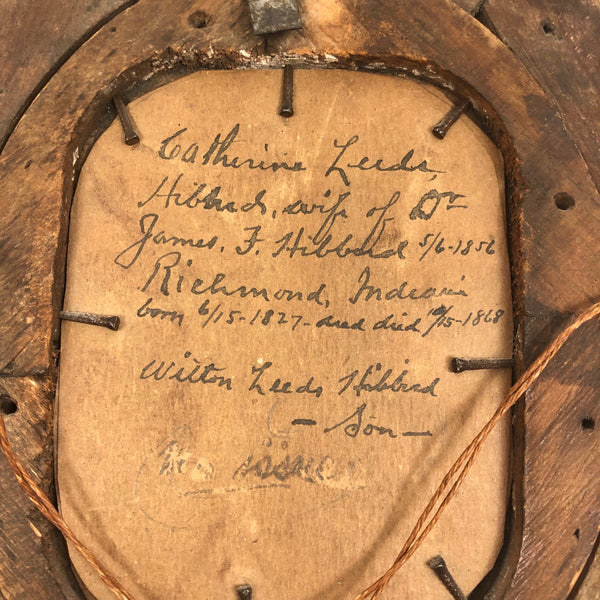 Catherine Leeds,
Hibberd, wife of Dr
James. F. Hibberd 5/6-1856
Richmond, Indiana
born 6/15-1827- died died /15-1868
Wilton Leeds Hibberd
- Son -